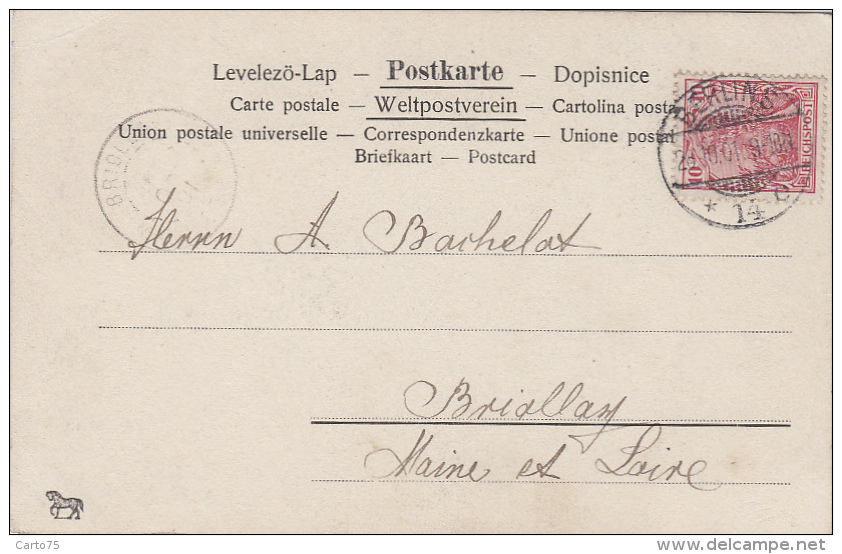 Levelezö-Lap — Postkarte — Dopisnice
Carte postale — Weltpostverein — Cartolina posta
Union postale universelle — Correspondenzkarte — Unione postal
Briefkaart — Postcard
BERLIN
.10.01. 9-10
* 14 C
10
REICHSPOST
BRIOL
Herrn A. Bachelot
Briollay
Maine et Loire
Carto75
www.delcampe.net